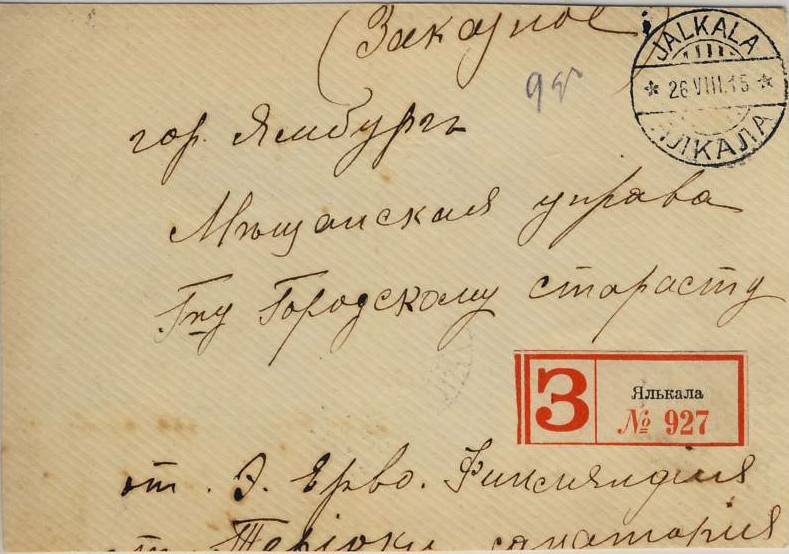 (Заказное)
JALKALA
* 26.VIII.15 *
ЯЛКАЛА
гор. Ямбургъ
Мѣщанская управа
Гну Городскому старасту
З
Ялькала
№ 927
от. Э. Ерво. Финляндія
ст. Теріоки санаторія